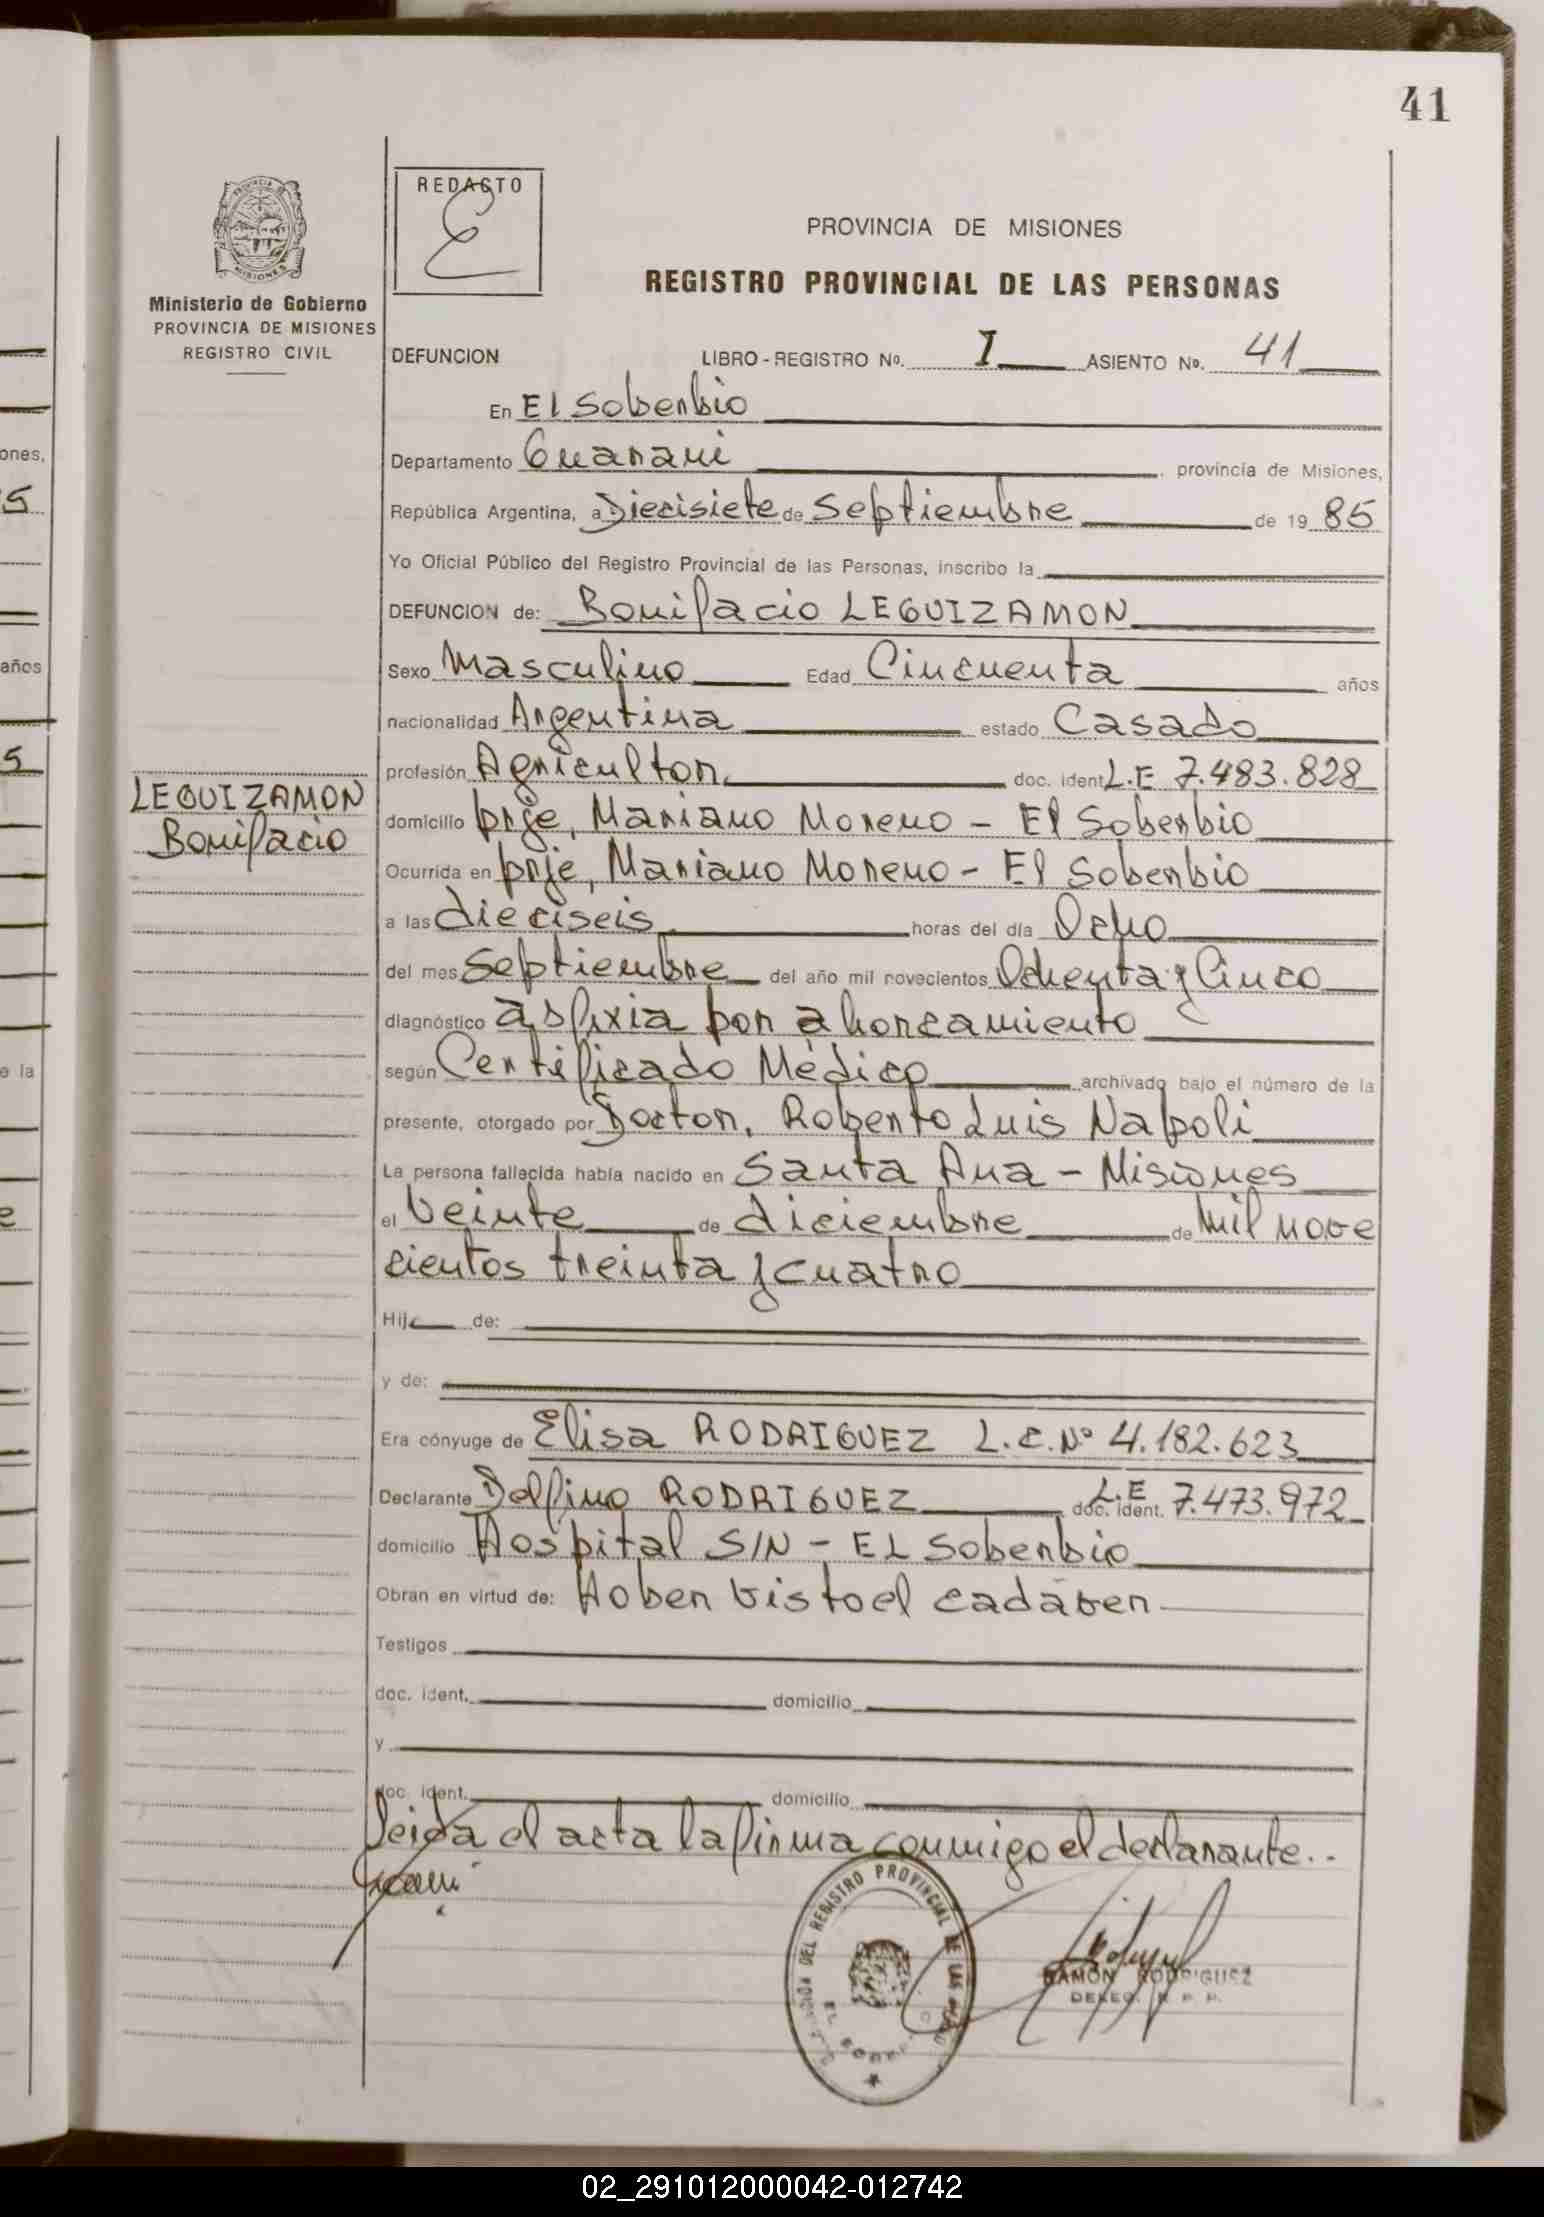 41
REDACTO
PROVINCIA DE
MISIONES
PROVINCIA DE MISIONES
REGISTRO PROVINCIAL DE LAS PERSONAS
Ministerio de Gobierno
PROVINCIA DE MISIONES
REGISTRO CIVIL
DEFUNCION LIBRO - REGISTRO Nº. I ASIENTO Nº. 41
En El Soberbio
Departamento Guarani provincia de Misiones,
República Argentina, a Diecisiete de Septiembre de 19 85
Yo Oficial Público del Registro Provincial de las Personas, inscribo la
DEFUNCION de: Bonifacio LEGUIZAMON
Sexo Masculino Edad Cincuenta años
nacionalidad Argentina estado Casado
profesión Agricultor doc. ident. L.E 7.483.828
LEGUIZAMON
Bonifacio
domicilio prje, Mariano Moreno - El Soberbio
Ocurrida en prje, Mariano Moreno - El Soberbio
a las dieciseis horas del día Ocho
del mes Septiembre del año mil novecientos Ochenta y Cinco
diagnóstico asfixia por ahorcamiento
según Certificado Médico archivado bajo el número de la
presente, otorgado por Doctor, Roberto Luis Napoli
La persona fallecida había nacido en Santa Ana - Misiones
el veinte de diciembre de mil nove
cientos treinta y cuatro
Hij de:
y de:
Era cónyuge de Elisa RODRIGUEZ L.C. Nº 4.182.623
Declarante Delfino RODRIGUEZ doc. ident. L.E 7.473.972
domicilio Hospital S/N - EL Soberbio
Obran en virtud de: Hober visto el cadáver
Testigos
doc. ident. domicilio
y
doc. ident. domicilio
Leida el acta la firma conmigo el declarante..
DEL REGISTRO PROVINCIAL DE LAS
RAMON RODRIGUEZ
DELEG. R. P. P.
02_291012000042-012742